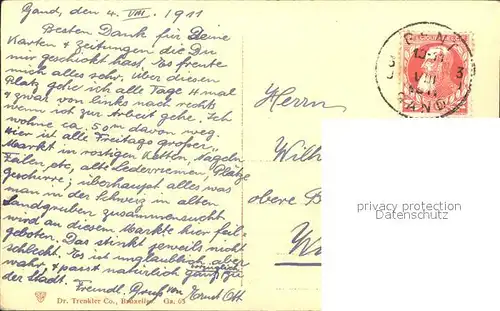 Gand, den 4. VIII. 1911
Besten Dank für Deine
Karten & Zeitungen die Du
mir geschickt hast. Es freute
mich alles sehr. Über diesen
Platz gehe ich alle Tage 4 mal
& zwar von links nach rechts
wenn ich zur Arbeit gehe. Ich
wohne ca. 50m davon weg.
Hier ist alle Freitage großer
Markt in rostigen Ketten, Nägeln
Feilen, etc, alte Lederriemen, Plätze
Geschirre; überhaupt alles was
man in der Schweiz in alten
Landgruben zusammensucht
wird an diesem Markte hier feil-
geboten. Das stinkt jeweils nicht
schlecht. Es ist unglaublich aber
wahr, & passt natürlich ganz zu
der Stadt. Freundl. Gruß von Ernst Ott
Dr. Trenkler Co., Bruxelles. Ga. 65
GENT
VIII
GAND
3
Herrn
Wilh
obere B
privacy protection
Datenschutz